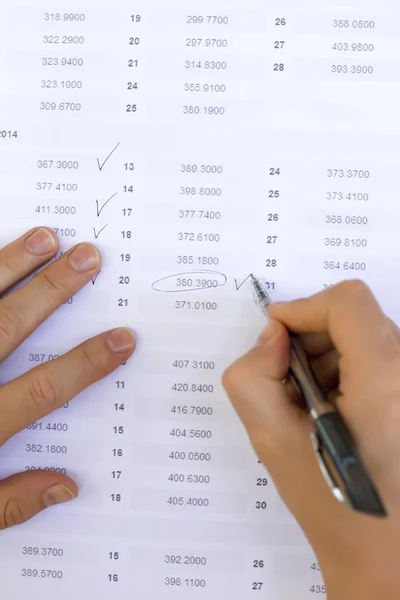 318.9900 19 299.7700 26 388.0800
322.2900 20 297.9700 27 403.9800
323.9400 21 314.8300 28 393.3900
323.1000 24 355.9100
309.6700 25 380.1900
2014
367.3000 13 389.3000 24 373.3700
377.4100 14 398.8000 25 373.4100
411.3000 17 377.7400 26 368.0600
18 372.6100 27 369.8100
19 385.1800 28 364.6400
20 380.3900 31
21 371.0100
407.3100
11 420.8400
14 416.7900
391.4400 15 404.5600
382.1800 16 400.0500
17 400.6300 29
18 405.4000 30
389.3700 15 392.2000 26
389.5700 16 398.1100 27